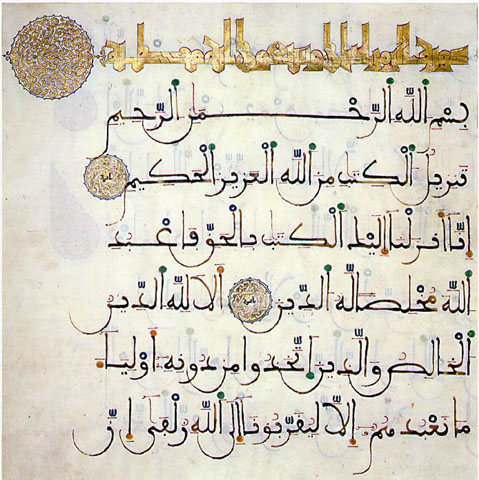 سورة
بسم الله الرحمن الرحيم
تنزيل الكتب من الله العزيز الحكيم
إنا أنزلنا إليك الكتب بالحق فاعبد
الله مخلصا له الدين ألا لله الدين
الخالص والذين اتخذوا من دونه أوليا
ما نعبدهم إلا ليقربونا إلى الله زلفى إن